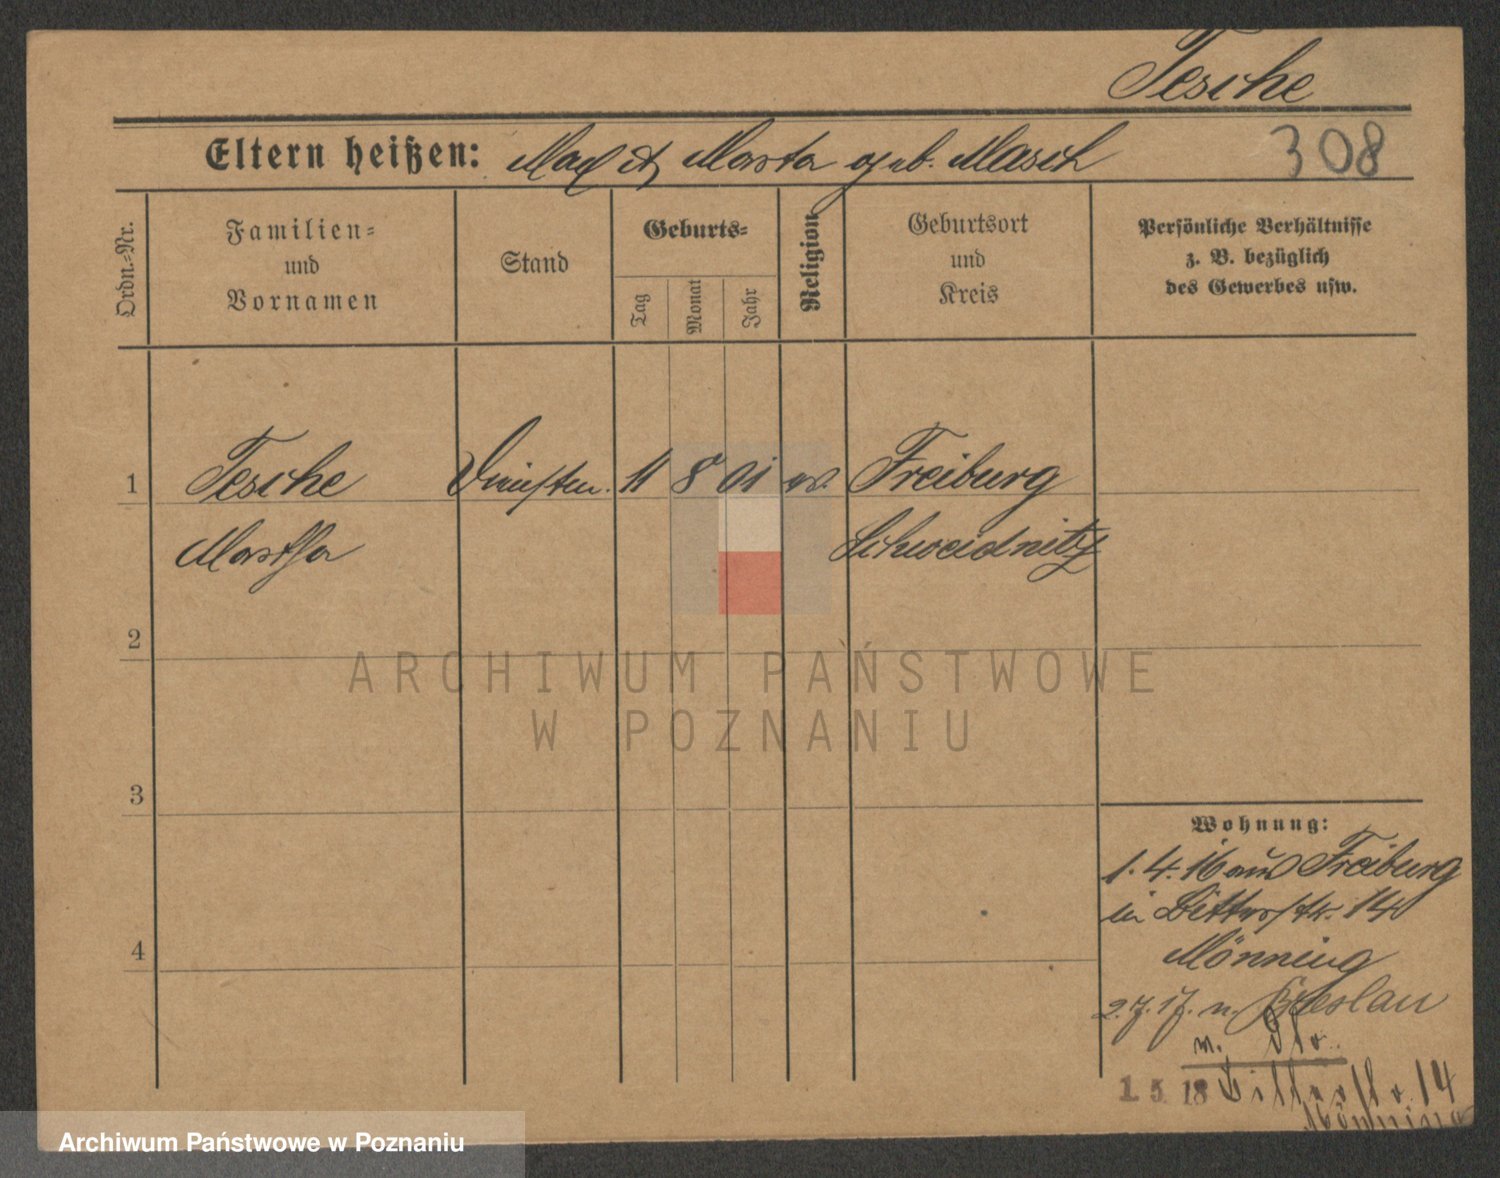 Tesche
Eltern heißen: Max & Marta geb. Masch
308
Ordn.-Nr.
Familien-
und
Vornamen
Stand
Geburts-
Tag
Monat
Jahr
Religion
Geburtsort
und
Kreis
Persönliche Verhältnisse
z. B. bezüglich
des Gewerbes usw.
1
Tesche
11 8 01 ev.
Freiburg
Martha
Schweidnitz
2
ARCHIWUM PAŃSTWOWE
W POZNANIU
3
4
Wohnung:
1.4.16 aus Freiburg
in 14
Mönning
2.7.17. n. Breslau
1. 5. 18 14
Mönning
Archiwum Państwowe w Poznaniu